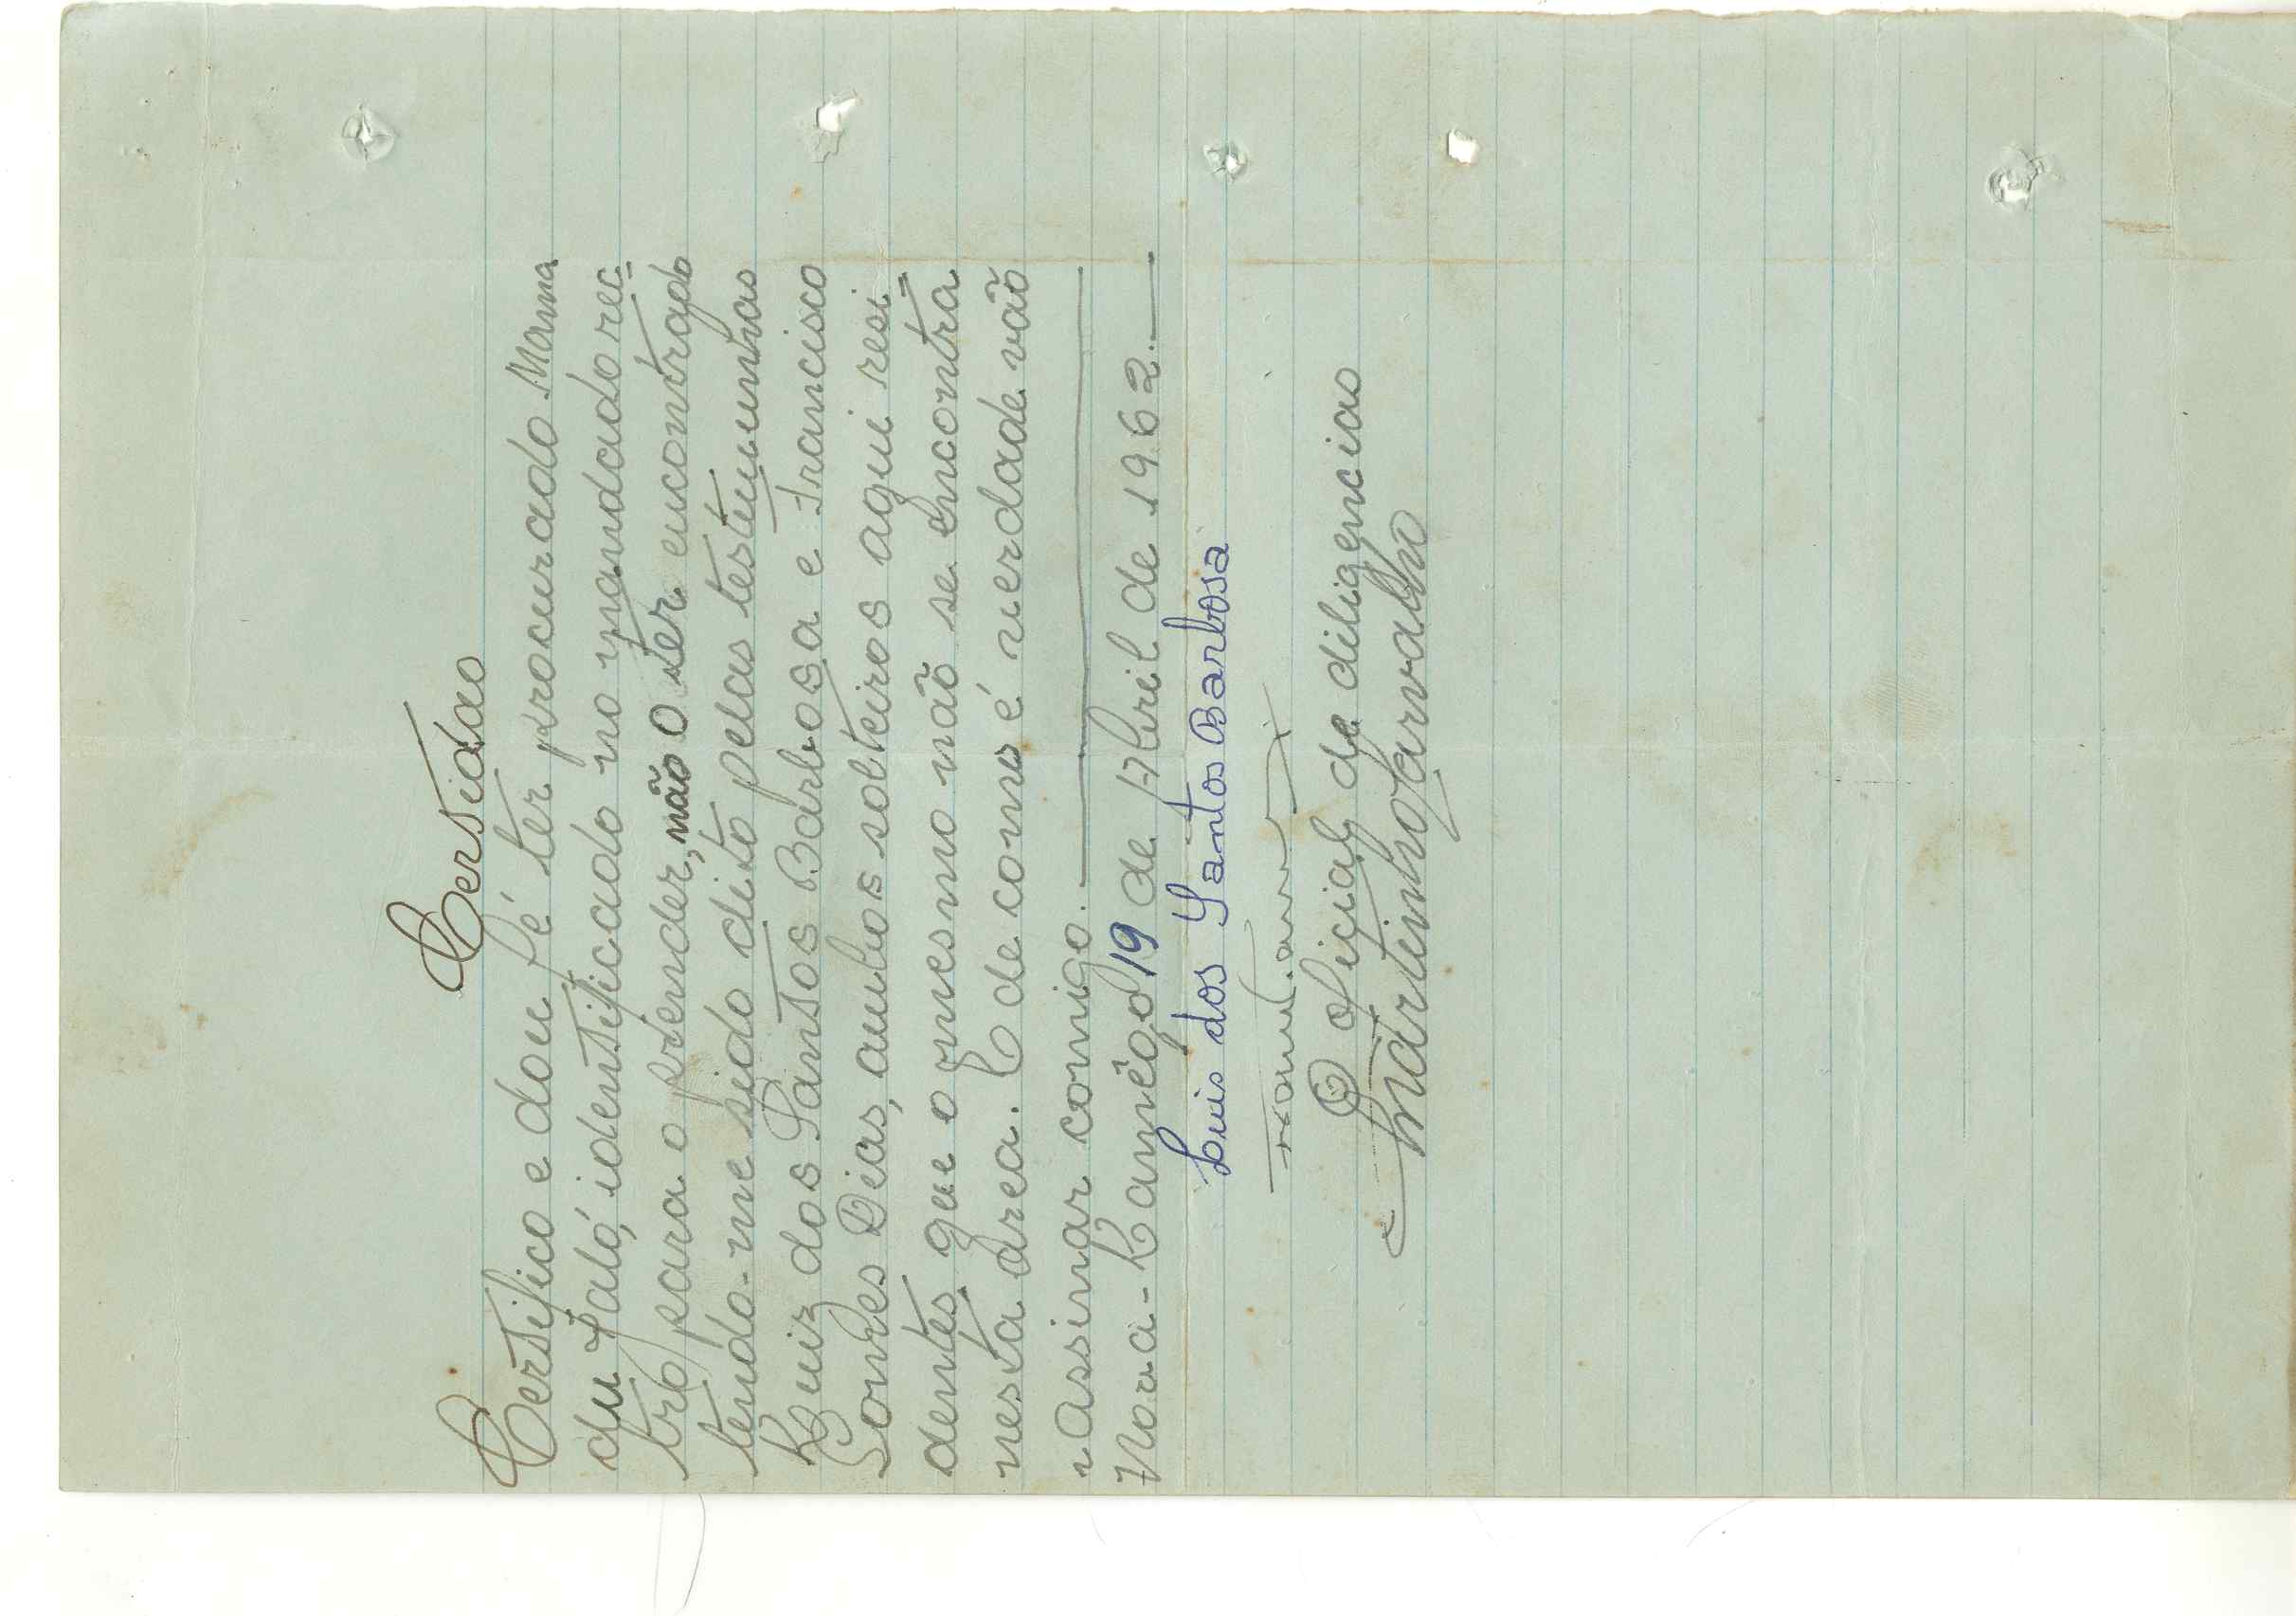 Certidão
Certifico e dou fé ter procurado Mama
du Jaló, identificado no mandado rec-
tro para o prender, não o ter encontrado
tendo-me sido dito pelas testemunhas
Luiz dos Santos Barbosa e Francisco
Gomes Dias, ambos solteiros aqui resi-
dentes que o mesmo não se encontra
nesta área. E de como é verdade vão
assinar comigo.
Nova-Lamego, 19 de Abril de 1962.
Luis dos Santos Barbosa
O oficial de diligencias
Martinho Carvalho